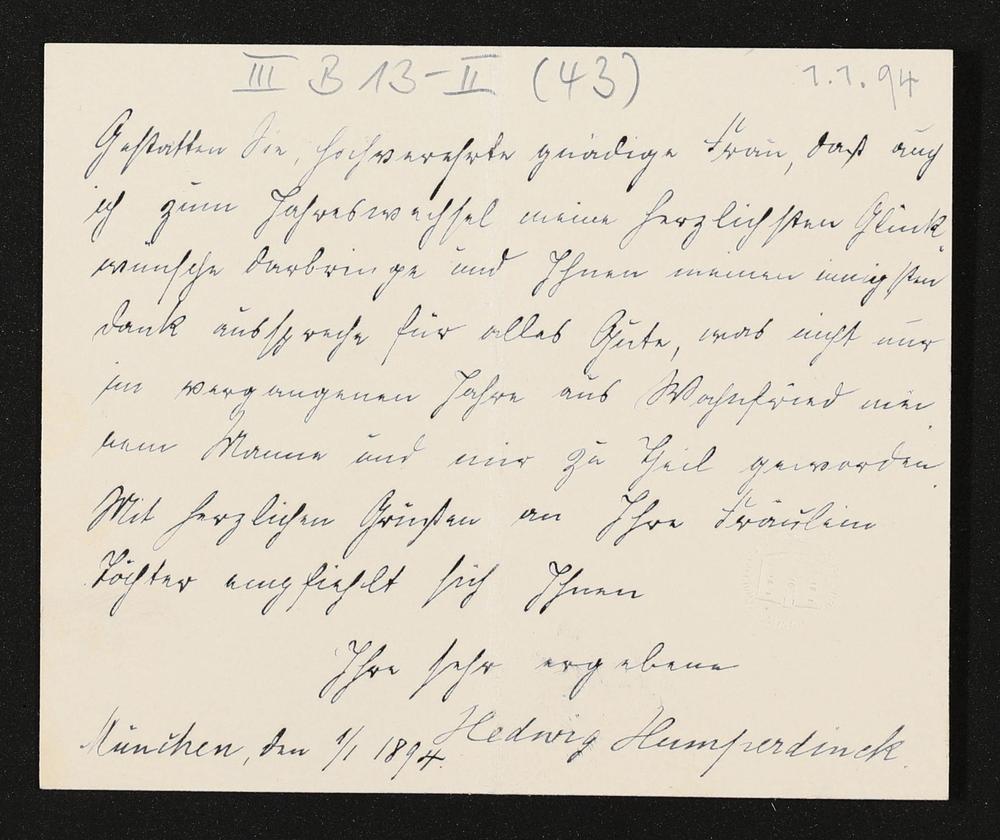 III B 13-II (43) 1.1.94
Gestatten Sie, hochverehrte gnädige Frau, daß auch
ich zum Jahreswechsel meine herzlichsten Glück-
wünsche darbringe und Ihnen meinen innigsten
Dank ausspreche für alles Gute, was nicht nur
im vergangenen Jahre aus Wahnfried mei
nem Manne und mir zu Theil geworden.
Mit herzlichen Grüßen an Ihre Fräulein
Töchter empfiehlt sich Ihnen
Ihre sehr ergebene
Hedwig Humperdinck.
München, den 1/1 1894.